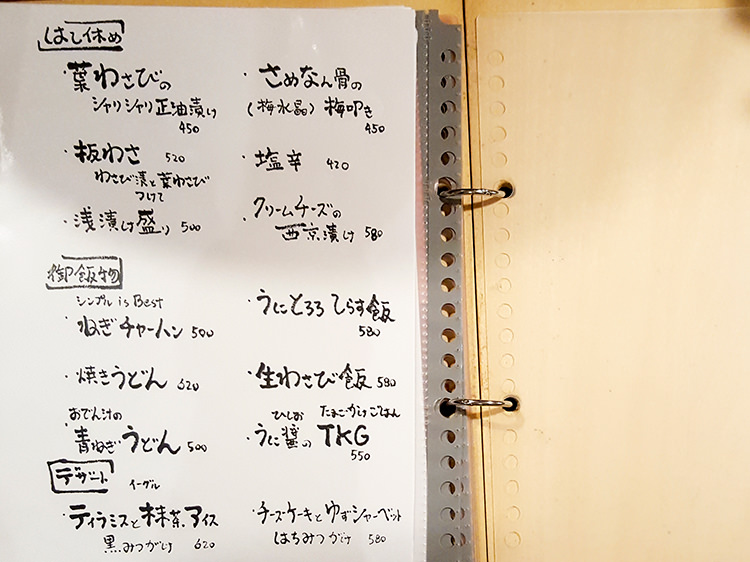 はし休め
・葉わさびの
シャリシャリ正油漬け
450
・さめなん骨の
(梅水晶) 梅叩き
450
・板わさ 520
わさび漬と葉わさび
つけて
・塩辛 420
・浅漬け盛り 500
・クリームチーズの
西京漬け 580
御飯物
シンプル is Best
・ねぎチャーハン 500
・うにとろろしらす飯
580
・焼きうどん 620
・生わさび飯 580
おでん汁の
・青ねぎうどん 500
ひしお たまごかけごはん
・うに醤の TKG
550
デザート
イーグル
・ティラミスと抹茶アイス
黒みつがけ 620
・チーズケーキとゆずシャーベット
はちみつがけ 580